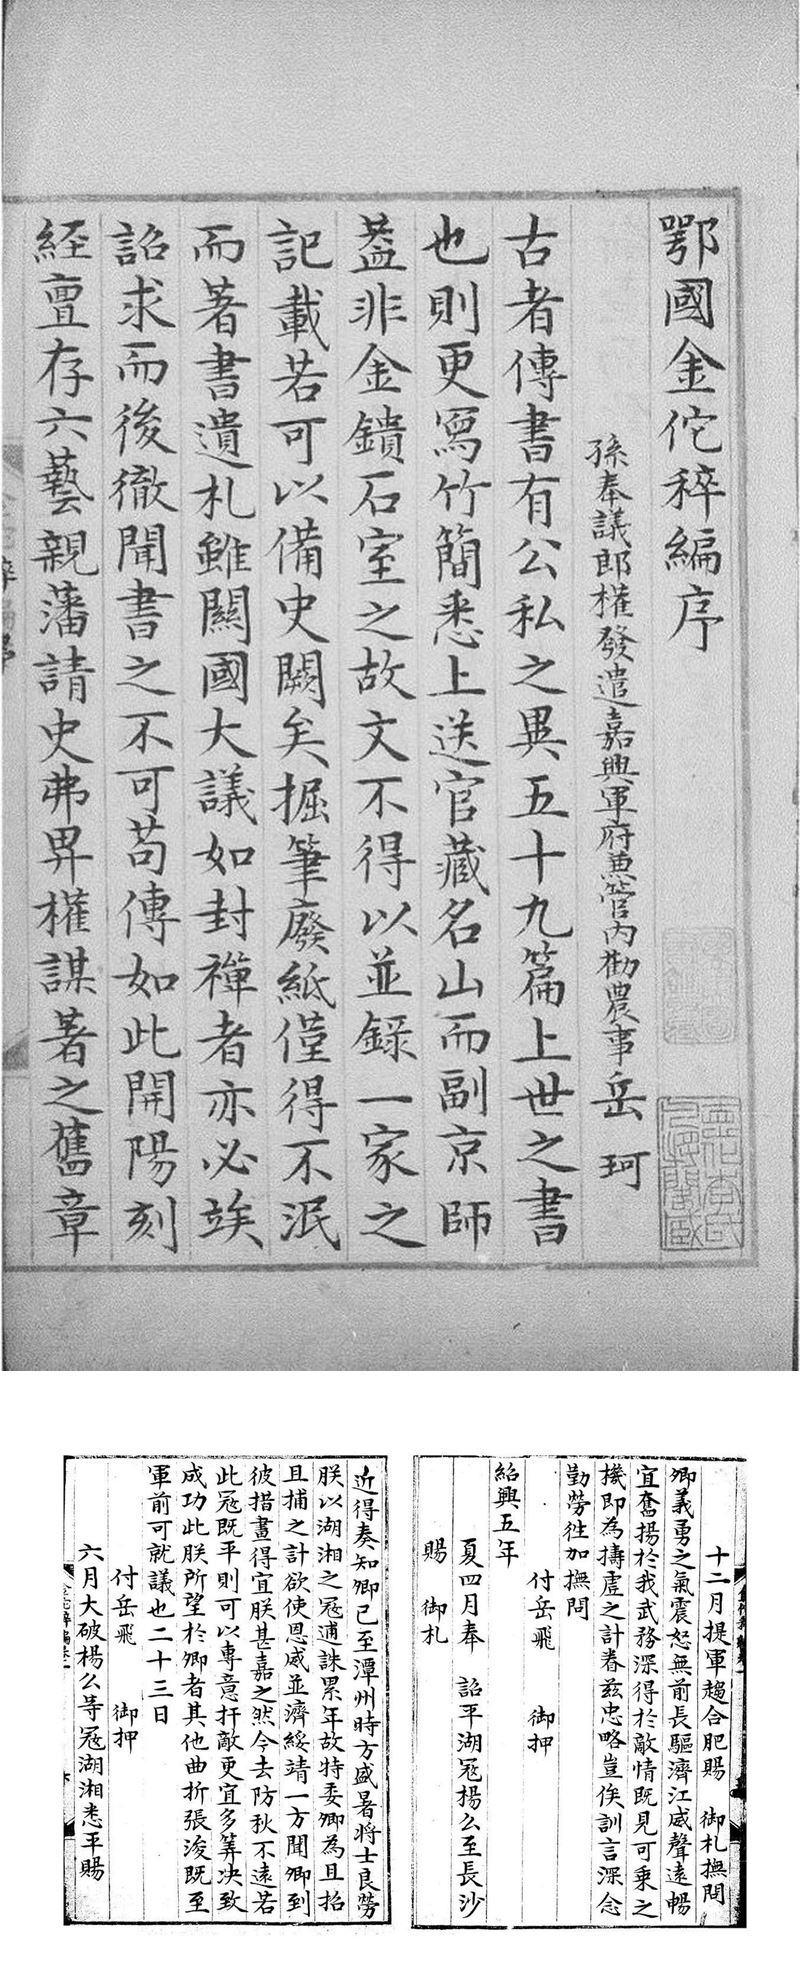 鄂國金佗稡編序
孫奉議郎權發遣嘉興軍府兼管內勸農事岳珂
古者傳書有公私之異五十九篇上世之書
也則更寫竹簡悉上送官藏名山而副京師
葢非金鐀石室之故文不得以並錄一家之
記載若可以備史闕矣掘筆廢紙僅得不泯
而著書遺札雖關國大議如封禪者亦必竢
詔求而後徹聞書之不可苟傳如此開陽刻
經亶存六藝親藩請史弗畀權謀著之舊章
十二月提軍趨合肥賜 御札撫問
卿義勇之氣震怒無前長驅濟江威聲遠暢
宜奮揚於我武務深得於敵情既見可乘之
機即為擣虛之計眷茲忠略豈俟訓言深念
勤勞往加撫問
付岳飛 御押
紹興五年
夏四月奉 詔平湖冦楊么至長沙
賜 御札
近得奏知卿已至潭州時方盛暑將士良勞
朕以湖湘之冦逋誅累年故特委卿為且招
且捕之計欲使恩威並濟綏靖一方聞卿到
彼措畫得宜朕甚嘉之然今去防秋不遠若
此冦既平則可以專意扞敵更宜多筭决致
成功此朕所望於卿者其他曲折張浚既至
軍前可就議也二十三日
付岳飛 御押
六月大破楊么等冦湖湘悉平賜